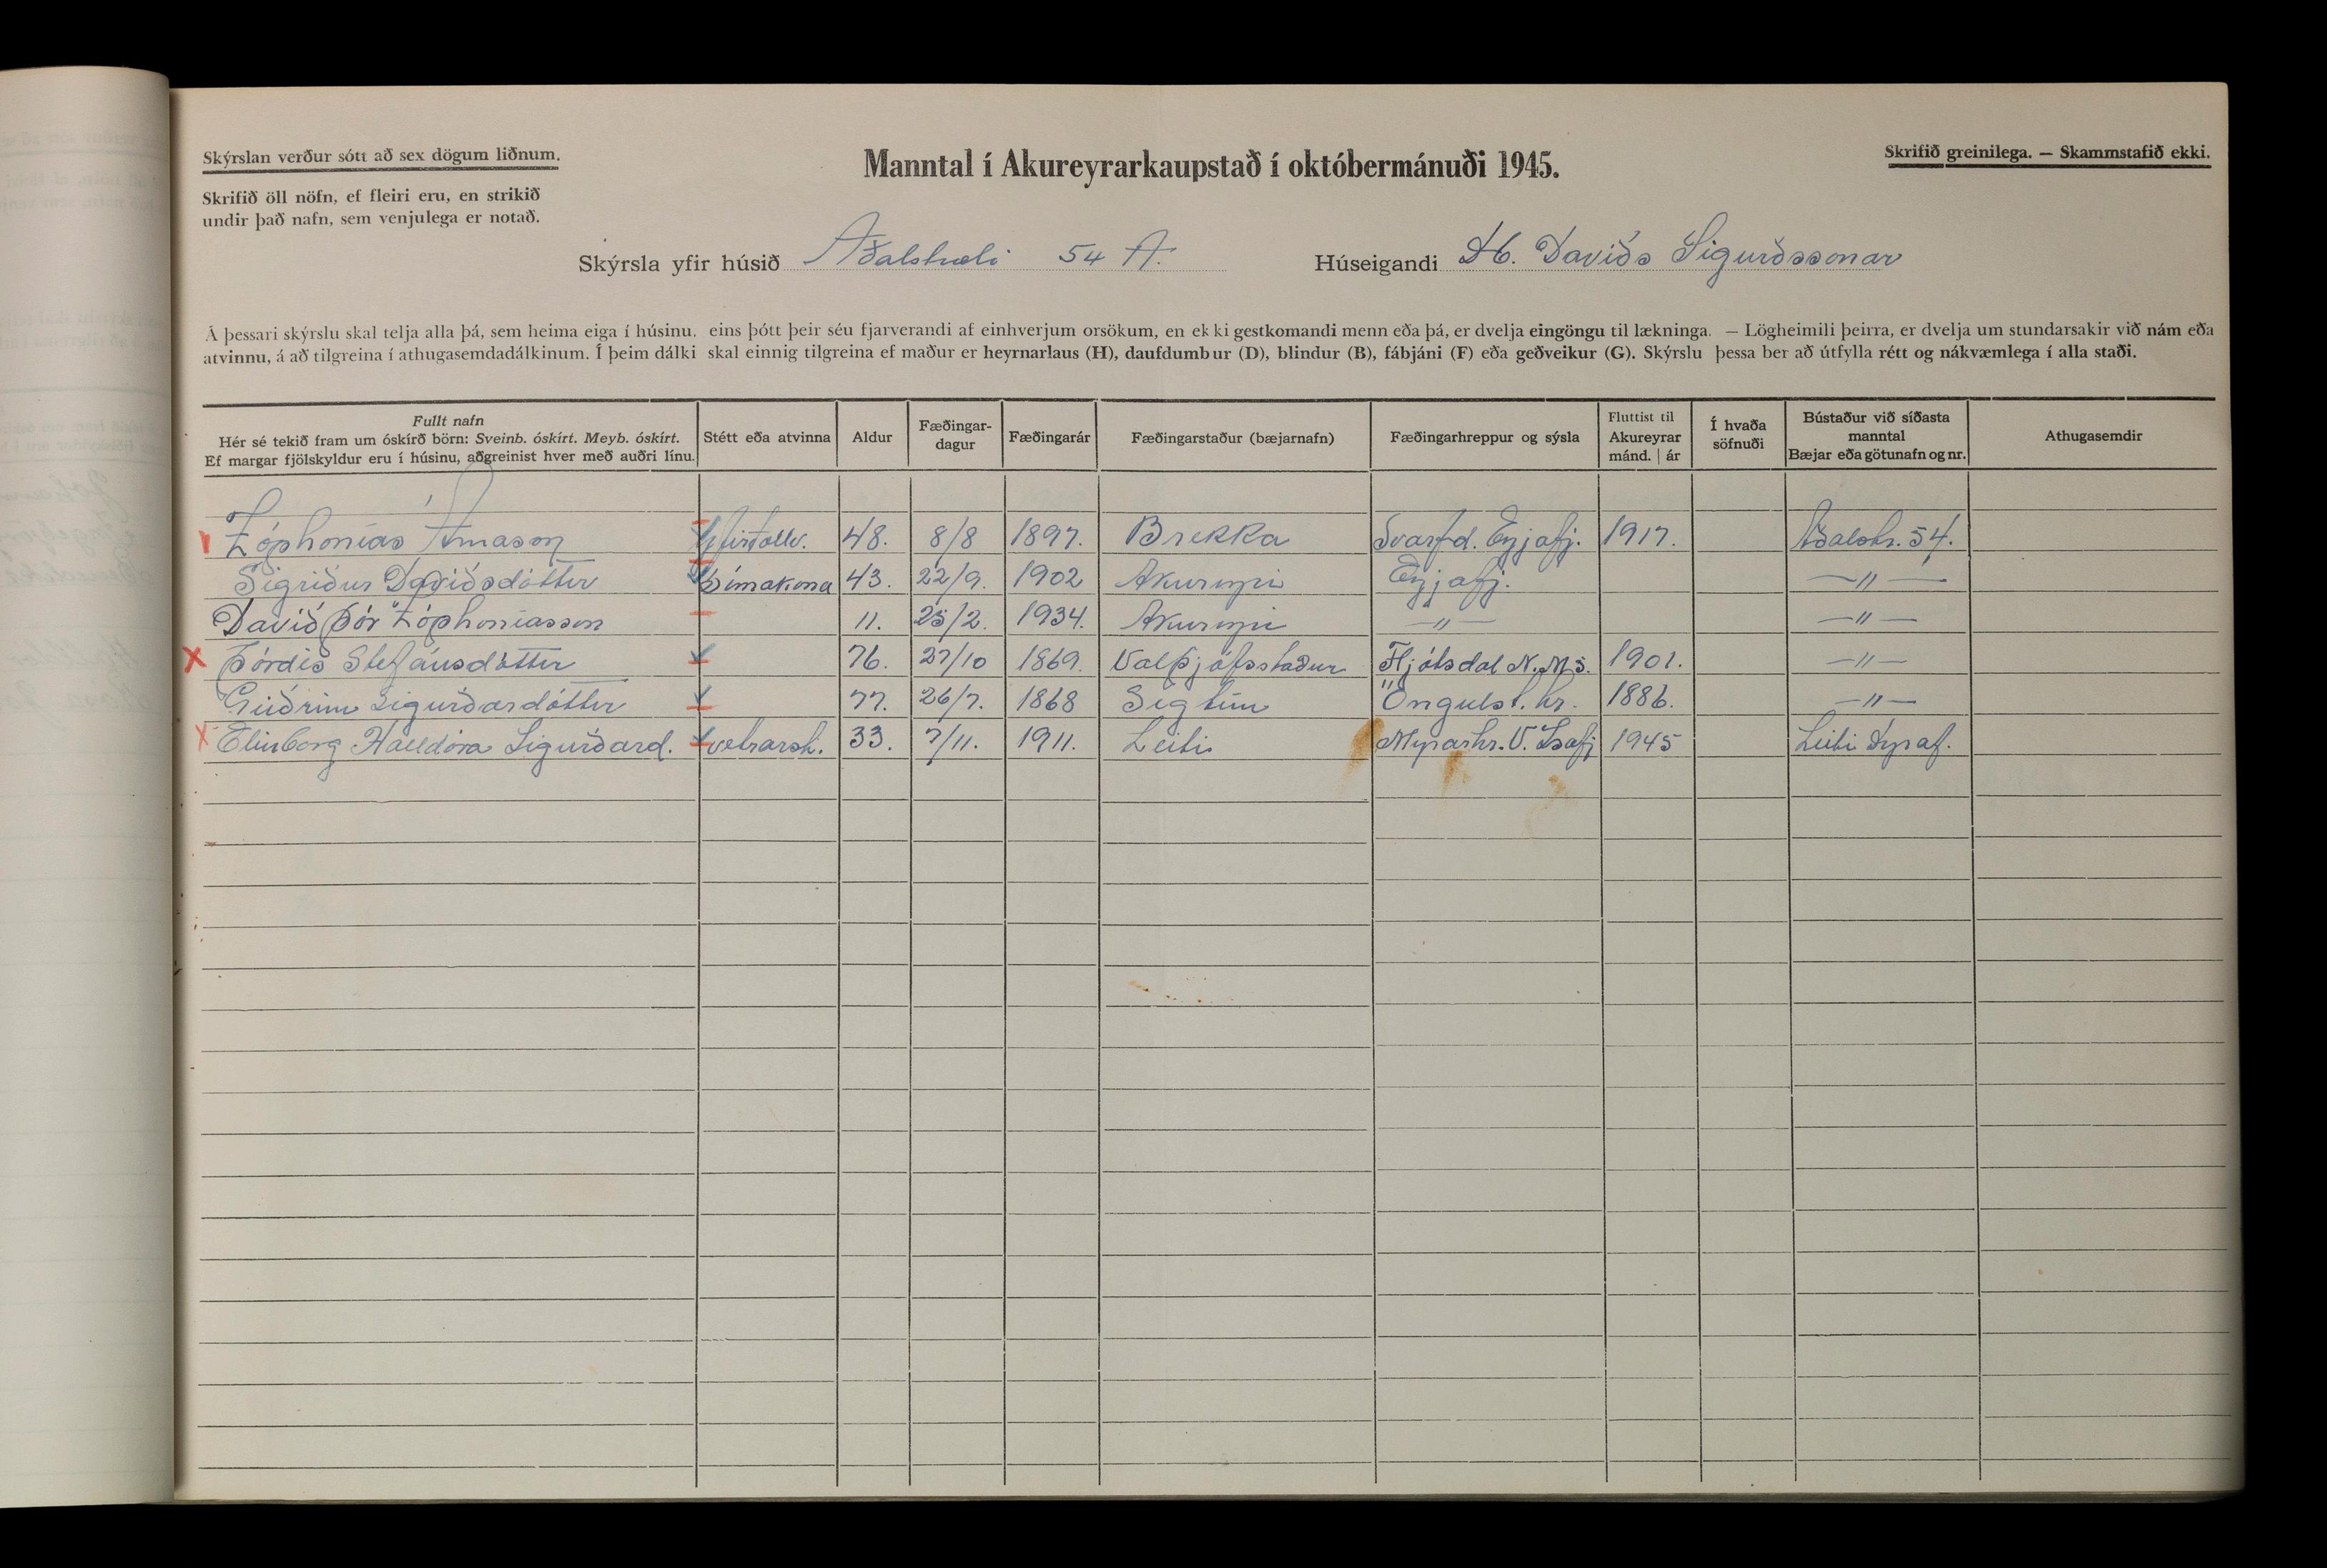 Skýrslan verður sótt að sex dögum liðnum.
Skrifið öll nöfn, ef fleiri eru, en strikið
undir það nafn, sem venjulega er notað.
Manntal í Akureyrarkaupstað í októbermánuði 1945.
Skrifið greinilega. — Skammstafið ekki.
Skýrsla yfir húsið Aðalstræti 54 A.
Húseigandi Db. Davíðs Sigurðssonar
Á þessari skýrslu skal telja alla þá, sem heima eiga í húsinu, eins þótt þeir séu fjarverandi af einhverjum orsökum, en ekki gestkomandi menn eða þá, er dvelja eingöngu til lækninga. — Lögheimili þeirra, er dvelja um stundarsakir við nám eða
atvinnu, á að tilgreina í athugasemdadálkinum. Í þeim dálki skal einnig tilgreina ef maður er heyrnarlaus (H), daufdumbur (D), blindur (B), fábjáni (F) eða geðveikur (G). Skýrslu þessa ber að útfylla rétt og nákvæmlega í alla staði.
Fullt nafn
Hér sé tekið fram um óskírð börn: Sveinb. óskírt. Meyb. óskírt.
Ef margar fjölskyldur eru í húsinu, aðgreinist hver með auðri línu.
Stétt eða atvinna
Aldur
Fæðingar-
dagur
Fæðingarár
Fæðingarstaður (bæjarnafn)
Fæðingarhreppur og sýsla
Fluttist til
Akureyrar
mánd. | ár
Í hvaða
söfnuði
Bústaður við síðasta
manntal
Bæjar eða götunafn og nr.
Athugasemdir
Zóphonías Árnason Yfirtollv. 48. 8/8 1897. Brekka Svarfd. Eyjafj. 1917. Aðalstr. 54.
Sigríður Davíðsdóttir Símakona 43. 22/9. 1902 Akureyri Eyjafj. —〃—
Davíð Þór Zóphoníasson 11. 23/2. 1934. Akureyri —〃— —〃—
Þórdís Stefánsdóttir 76. 27/10 1869. Valþjófsstaður Fljótsdal N.M.S. 1901. —〃—
Guðrún Sigurðardóttir 77. 26/7. 1868 Sigtún Öngulst. hr. 1886. —〃—
Elinborg Halldóra Sigurðard. vetrarst. 33. 7/11. 1911. Leiti Myrarhr. V. Isafj 1945 Leiti Dyraf.